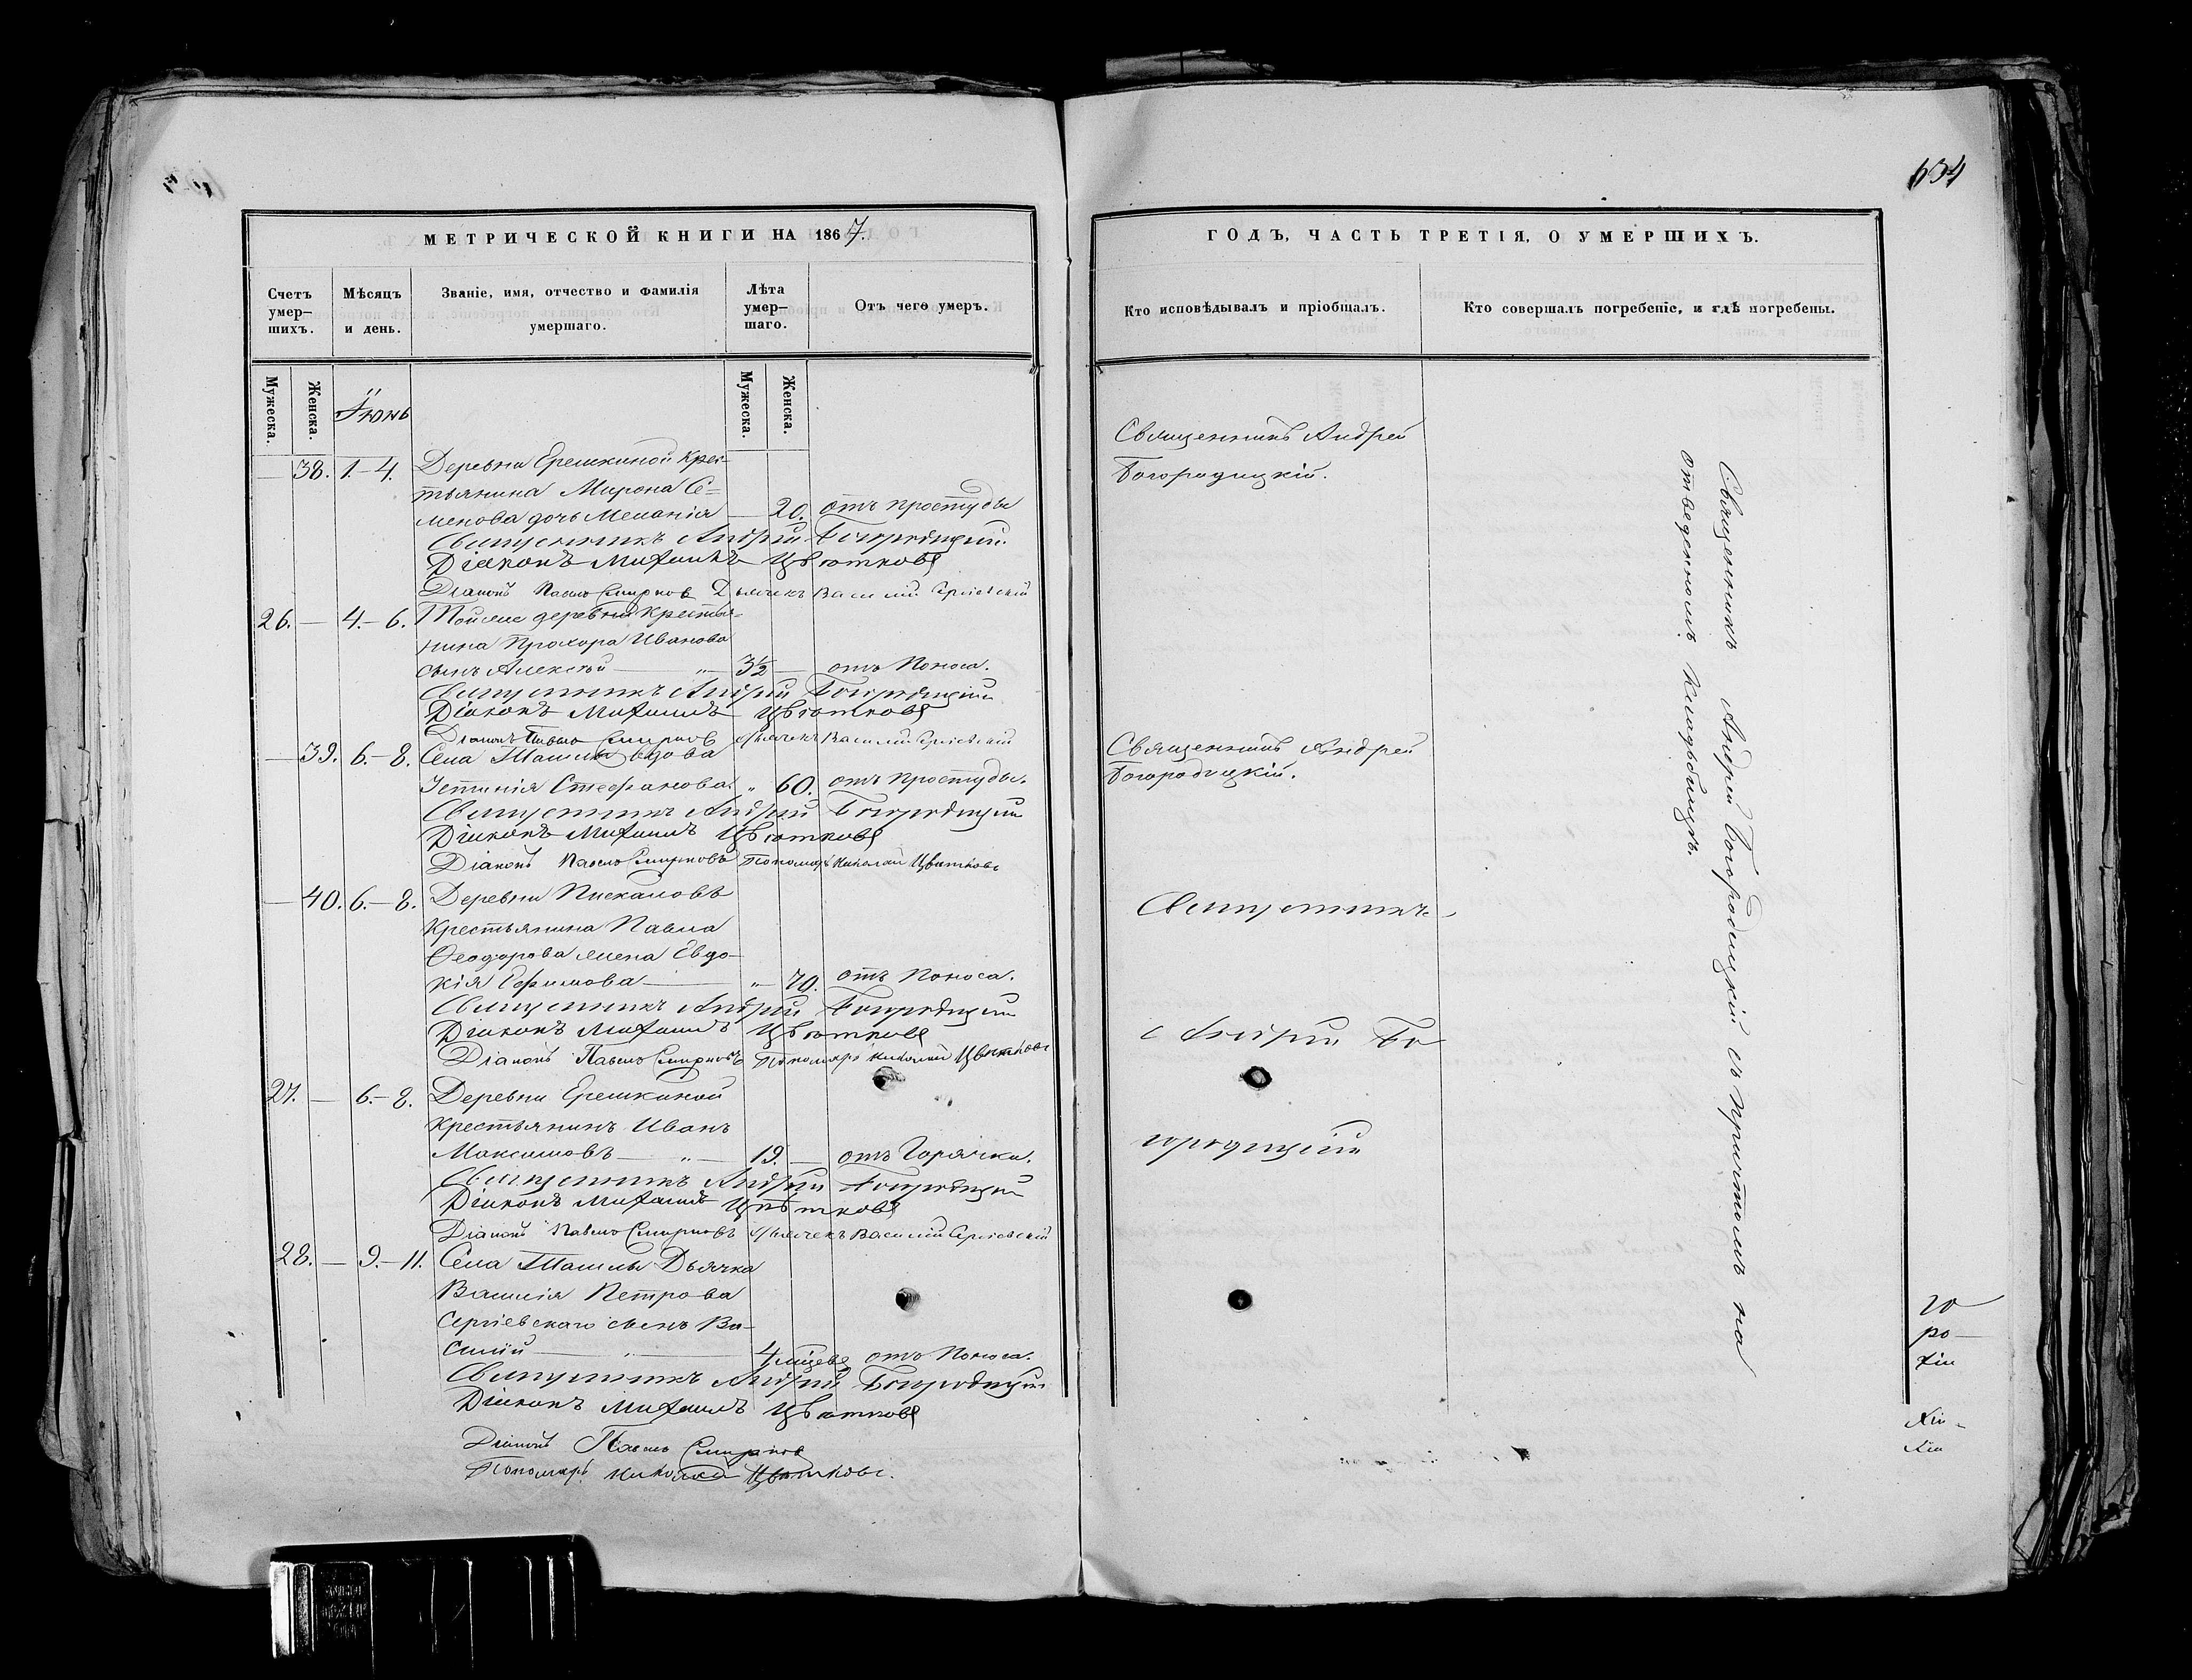 МЕТРИЧЕСКОЙ КНИГИ НА 1867.
Счетъ умер-шихъ.
Мѣсяцъ и день.
Званіе, имя, отчество и фамилія умершаго.
Лѣта умер-шаго.
Отъ чего умеръ.
Мужеска.
Женска.
Іюнь
Мужеска.
Женска.
— 38. 1.-4. Деревни Ерешкиной Крес-
тьянина Мирона Се-
менова дочь Меланія — 20. отъ простуды
Священникъ Андрей Богородицкій.
Діаконъ Михаилъ Цвѣтковъ
Діаконъ Павелъ Смирновъ Дьячекъ Василій Сергіевскій
26. — 4.-6. Тойже деревни крестья-
нина Прохора Иванова
сынъ Алексѣй — „ — 3½ — отъ Поноса.
Священникъ Андрей Богородицкій
Діаконъ Михаилъ Цвѣтковъ
Діаконъ Павелъ Смирновъ Дьячекъ Василій Сергіевскій
— 39. 6.-8. Села Ташлы вдова
Устинія Стефанова. „ 60. отъ простуды.
Священникъ Андрей Богородицкій
Діаконъ Михаилъ Цвѣтковъ
Діаконъ Павелъ Смирновъ Пономарь Николай Цвѣтковъ
— 40. 6.-8. Деревни Пискаловъ
Крестьянина Павла
Ѳеодорова жена Евдо-
кія Ефимова — „ — 70. отъ Поноса.
Священникъ Андрей Богородицкій
Діаконъ Михаилъ Цвѣтковъ
Діаконъ Павелъ Смирновъ Пономарь Николай Цвѣтковъ
27. — 6.-8. Деревни Ерешкиной
Крестьянинъ Иванъ
Максимовъ — „ — 19. — отъ Горячки.
Священникъ Андрей Богородицкій
Діаконъ Михаилъ Цвѣтковъ
Діаконъ Павелъ Смирновъ Дьячекъ Василій Сергіевскій
28. — 9.-11. Села Ташлы Дьячка
Василія Петрова
Сергіевскаго сынъ Ва-
силій — „ — 4 мѣсяцевъ отъ Поноса.
Священникъ Андрей Богородицкій
Діаконъ Михаилъ Цвѣтковъ
Діаконъ Павелъ Смирновъ
Пономарь Николай Цвѣтковъ.
634
ГОДЪ, ЧАСТЬ ТРЕТІЯ, О УМЕРШИХЪ.
Кто исповѣдывалъ и пріобщалъ.
Кто совершалъ погребеніе, и гдѣ погребены.
Священникъ Андрей
Богородицкій.
Священникъ Андрей
Богородицкій.
Священникъ
Андрей Бо
городицкій
Священникъ Андрей Богородицкій съ причтомъ на
отведенномъ Кладбищѣ.
го
ро